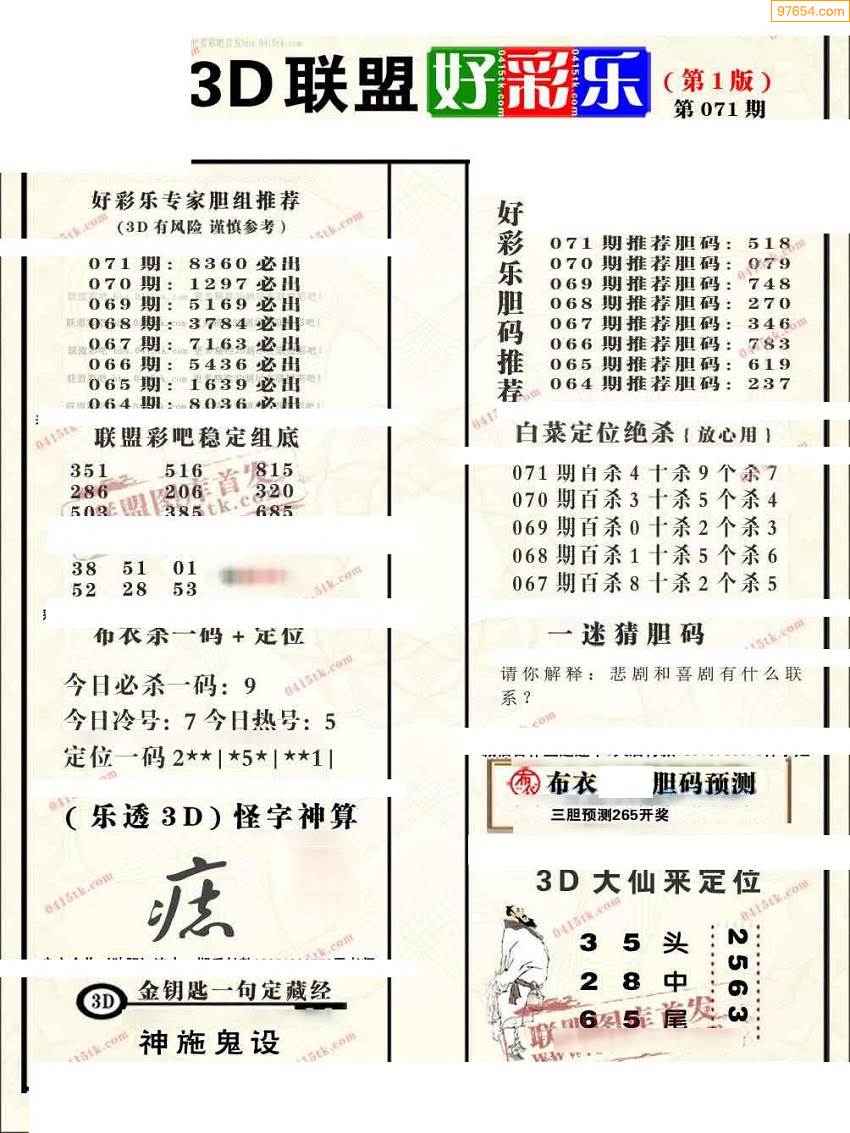 97654.com
3D联盟好彩乐
(第1版)
第071期
好彩乐专家胆组推荐
(3D有风险 谨慎参考)
071期: 8360必出
070期: 1297必出
069期: 5169必出
068期: 3784必出
067期: 7163必出
066期: 5436必出
065期: 1639必出
064期: 8036必出
联盟彩吧稳定组底
351 516 815
286 206 320
503 385 685
38 51 01
52 28 53
布衣杀一码+定位
今日必杀一码: 9
今日冷号: 7 今日热号: 5
定位一码2**|*5*|**1|
(乐透3D)怪字神算
痣
3D 金钥匙一句定藏经
神施鬼设
好彩乐胆码推荐
071期推荐胆码: 518
070期推荐胆码: 079
069期推荐胆码: 748
068期推荐胆码: 270
067期推荐胆码: 346
066期推荐胆码: 783
065期推荐胆码: 619
064期推荐胆码: 237
白菜定位绝杀{放心用}
071期百杀4十杀9个杀7
070期百杀3十杀5个杀4
069期百杀0十杀2个杀3
068期百杀1十杀5个杀6
067期百杀8十杀2个杀5
一迷猜胆码
请你解释: 悲剧和喜剧有什么联
系?
布衣 胆码预测
三胆预测265开奖
3D大仙来定位
3 5 头
2 8 中
6 5 尾
2563
联盟图库首发
0415tk.com